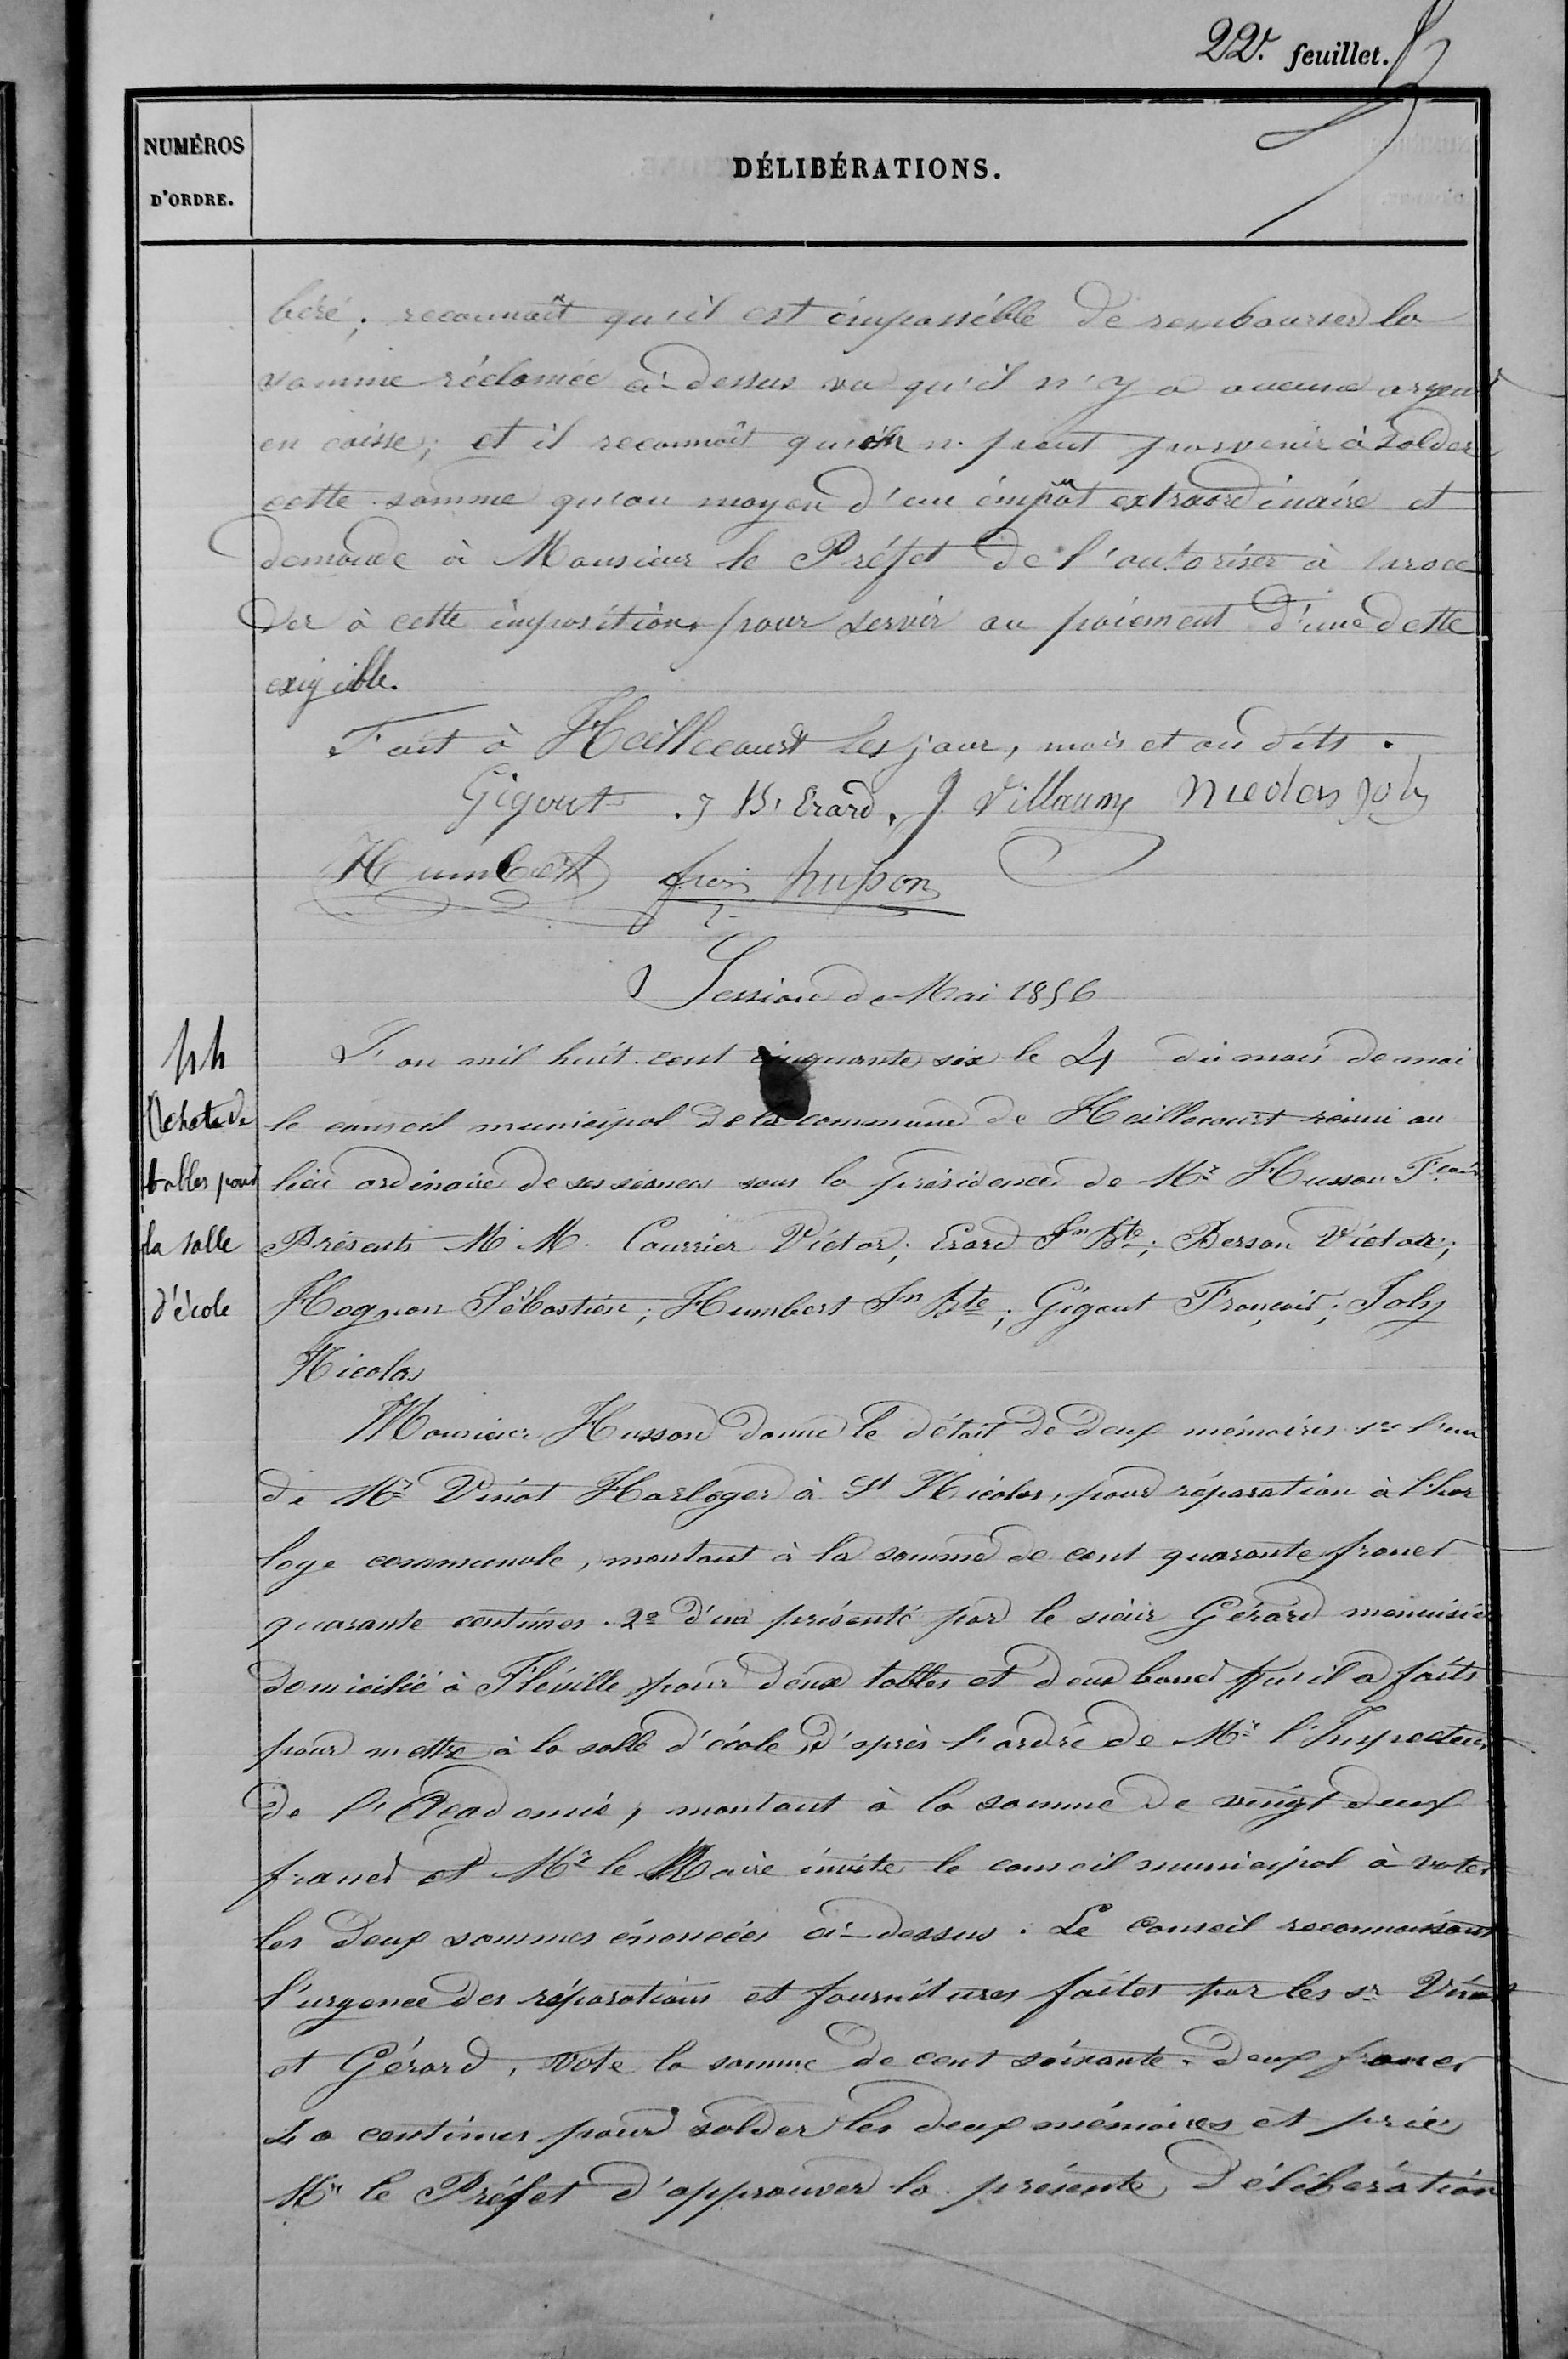 22e feuillet.
NUMÉROS
D'ORDRE.
DÉLIBÉRATIONS.
béré; reconnaît qu'il est impossible de rembourser la
somme réclamée ci-dessus vu qu'il n'y a aucune argent
en caisse; et il reconnaît qu'on n. peut parvenir à solder
cette somme qu'au moyen d'un impôt extraordinaire et
demande à Monsieur le Préfet de l'autoriser à procé
der à cette imposition pour servir au paiement d'une dette
exigible.
Fait à Heillecourt les jour, mois et an dits.
Gigout . J B. Erard. J. Villaume Nicolas Joly
Humbert frçois husson
Session de Mai 1856
44
Achats de
tables pour
la salle
d'école
L'an mil huit cent cinquante six le 4 du mois de mai
le conseil municipal de la commune de Heillecourt réuni au
lieu ordinaire de ses séances sous la présidence de Mr Husson F.çois
Présents M.M. Courrier Victor; Erard Jn Bte; Berson Victor;
Hognon Sébastien; Humbert Jn Bte; Gigout François; Joly
Nicolas
Monsieur Husson donne le détail de deux mémoires 1er l'un
de Mr Vinot Horloger à St Nicolas, pour réparation à l'hor
loge communale, montant à la somme de cent quarante francs
quarante centimes. 2e d'un présenté par le sieur Gérard menuisier
domicilié à Fléville pour deux tables et deux bancs qu'il a faits
pour mettre à la salle d'école d'après l'ordre de Mr l'Inspecteur
de l'Academie, montant à la somme de vingt deux
francs et Mr le Maire invite le conseil municipal à voter
les deux sommes énoncées ci-dessus. Le Conseil reconnaissant
l'urgence des réparations et fournitures faites par les sr Vinot
et Gérard, vote la somme de cent soixante-deux francs
40 centimes pour solder les deux mémoires et prie
Mr le Préfet d'approuver la présente Délibération